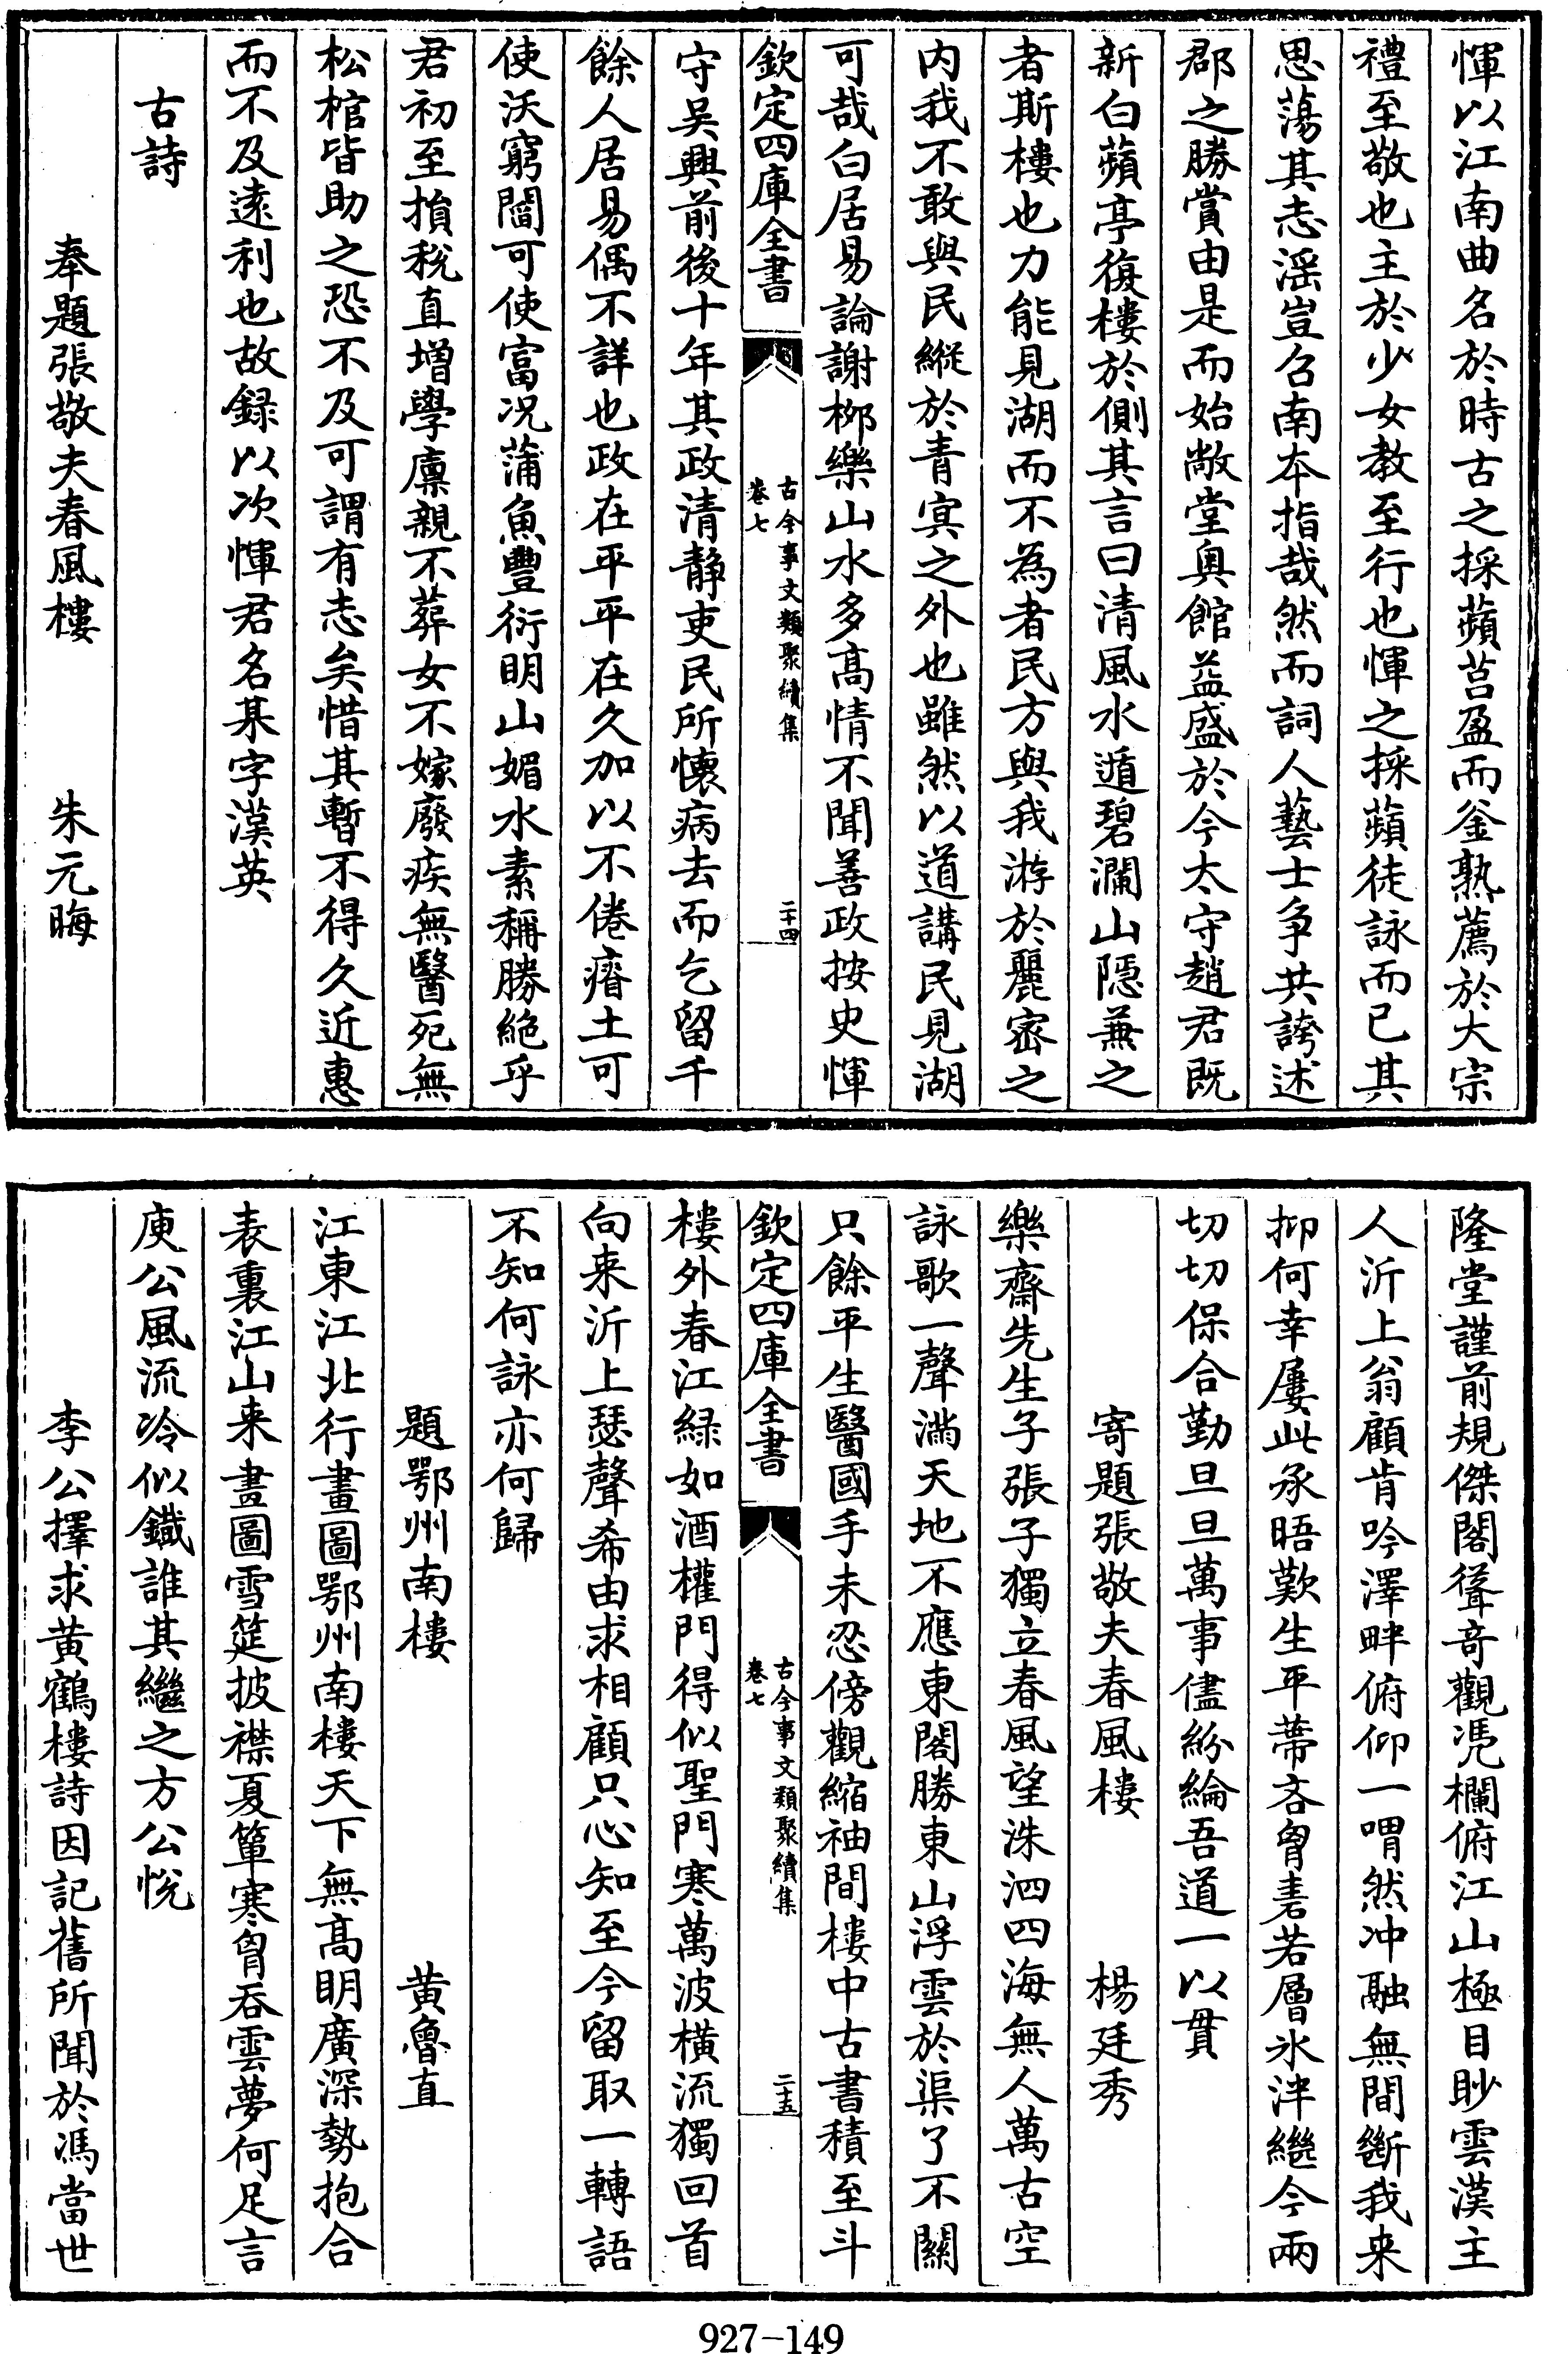 惲以江南曲名於時古之採蘋莒盈而釜熟薦於大宗
禮至敬也主於少女教至行也惲之採蘋徒詠而已其
思蕩其志滛豈召南夲指哉然而詞人藝士争共誇述
郡之勝賞由是而始敞堂奥館益盛於今太守趙君既
新白蘋亭復樓於側其言曰清風水遁碧瀾山隠蒹之
者斯樓也力能見湖而不為者民方與我游於麗宻之
内我不敢與民縱於青㝠之外也雖然以道講民見湖
可哉白居易論謝栁樂山水多髙情不聞善政按史惲
欽定四庫全書
古今事文類聚續集
卷七
二十四
守吳興前後十年其政清静吏民所懷病去而乞留千
餘人居易偶不詳也政在平平在久加以不倦瘠土可
使沃窮閻可使富况蒲魚豐衍明山媚水素稱勝絶乎
君初至捐税直增學廪親不葬女不嫁廢疾無醫死無
松棺皆助之恐不及可謂有志矣惜其暫不得久近惠
而不及逺利也故録以次惲君名某字漢英
古詩
奉題張敬夫春風樓 朱元晦
隆堂謹前規傑閣聳竒觀凭欄俯江山極目眇雲漢主
人沂上翁顧肯吟澤畔俯仰一喟然冲融無間斷我来
抑何幸屢此承晤歎生平蔕吝胷砉若層氷泮繼今兩
切切保合勤旦旦萬事儘紛綸吾道一以貫
寄題張敬夫春風樓 楊廷秀
樂齋先生子張子獨立春風望洙泗四海無人萬古空
詠歌一聲滿天地不應東閣勝東山浮雲於渠了不關
只餘平生醫國手未忍傍觀縮袖間樓中古書積至斗
欽定四庫全書
古今事文類聚續集
卷七
二十五
樓外春江緑如酒權門得似聖門寒萬波橫流獨回首
向来沂上瑟聲希由求相顧只心知至今留取一轉語
不知何詠亦何歸
題鄂州南樓 黄魯直
江東江北行畫圖鄂州南樓天下無髙明廣深勢抱合
表裏江山来畫圖雪筵披襟夏簟寒胷吞雲夢何足言
庾公風流冷似鐵誰其繼之方公悦
李公擇求黄鶴樓詩因記舊所聞於馮當世
927-149